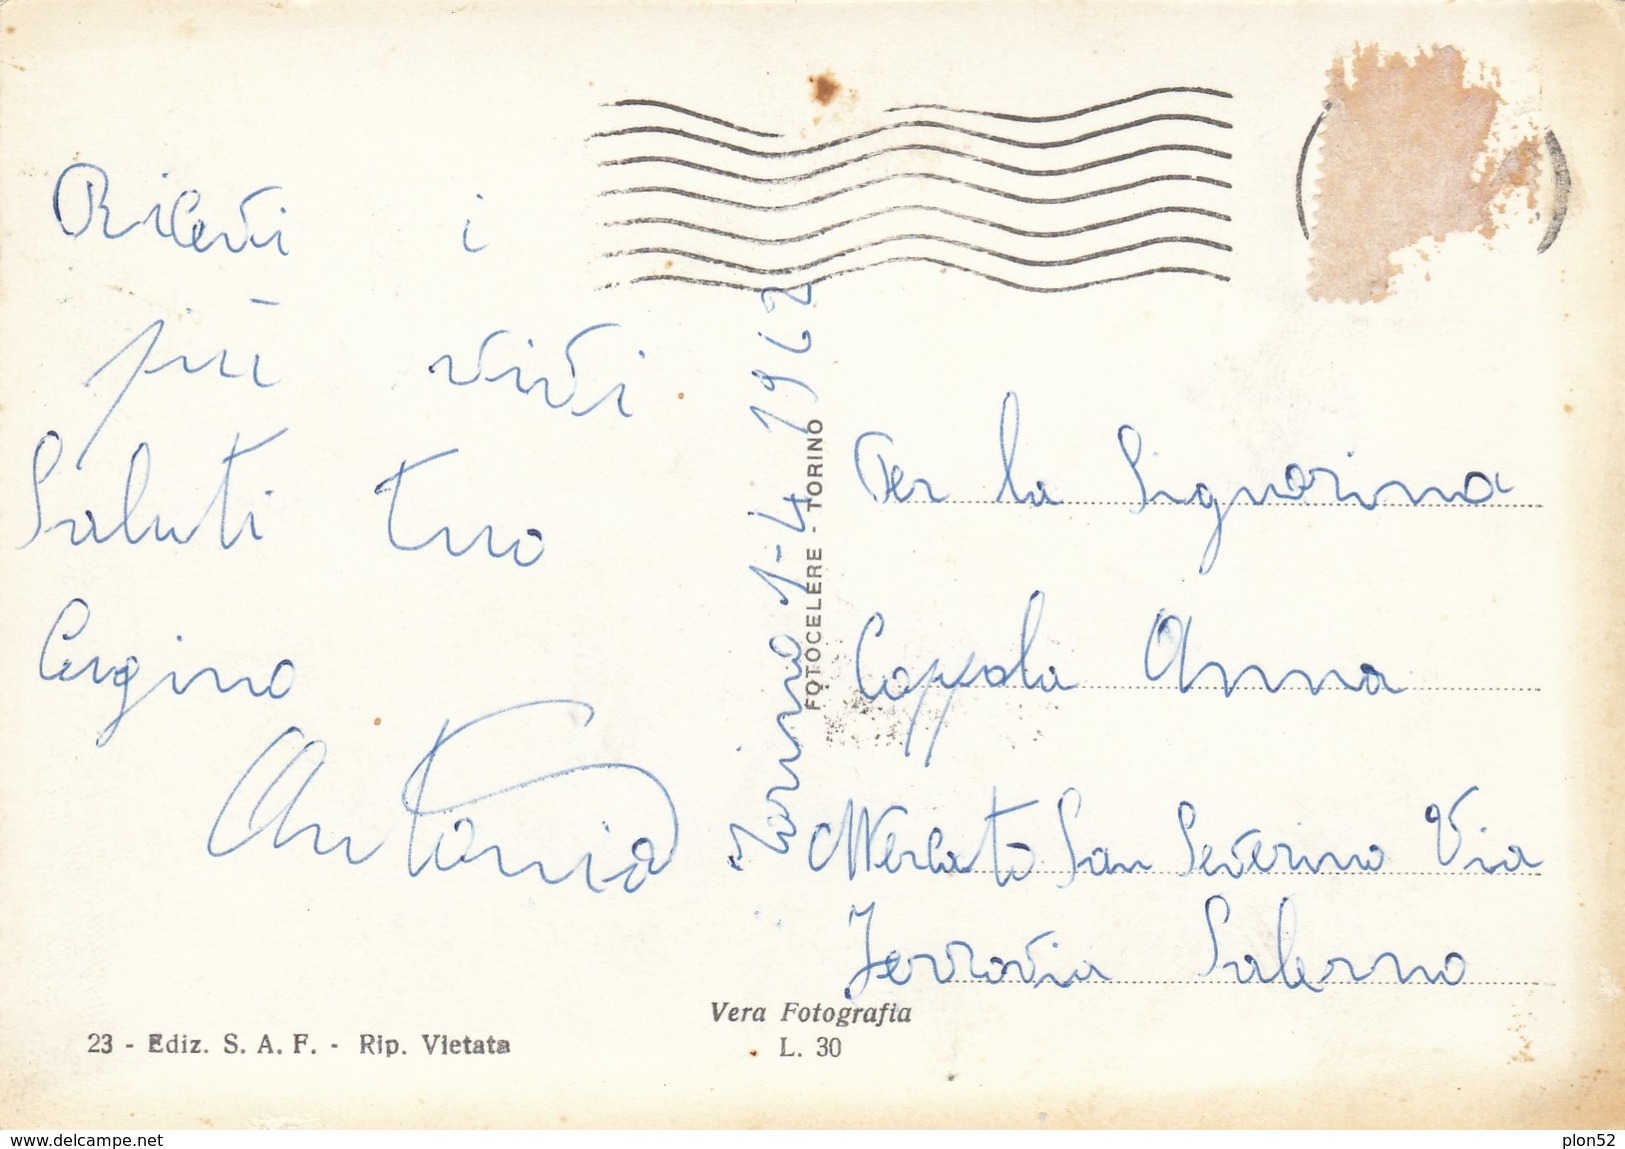 Ricevi i
più vivi
Saluti tuo
Cugino
Antonio
Torino 1-4 1962
FOTOCELERE - TORINO
Per la Signorina
Coppola Anna
Mercato San Severino Via
Ferrovia Salerno
Vera Fotografia
L. 30
23 - Ediz. S. A. F. - Rip. Vietata
www.delcampe.net
plon52